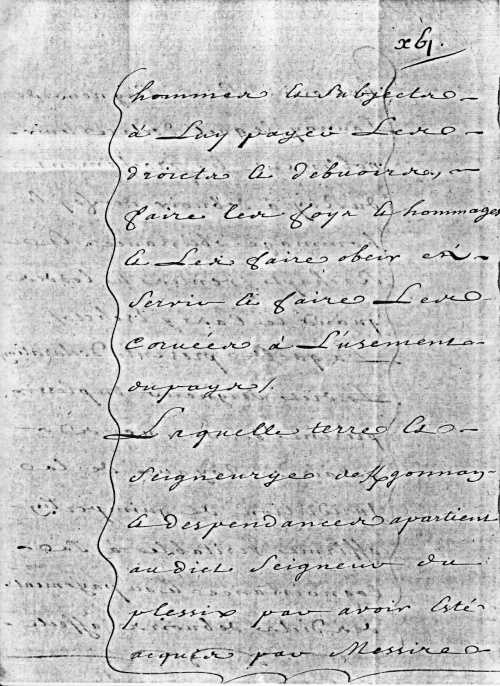 xbj.
hommes et Subjects
à Luy payer Les
droicts et debuoirs,
faire les foys et hommages
et Les faire obeir et
Servir et faire Les
Corvées à L'usement
du pays /.
Laquelle terre et
Seigneurye de Kgonnay
et despendances apartient
audict Seigneur du
plessix par avoir Esté
acquis par Messire